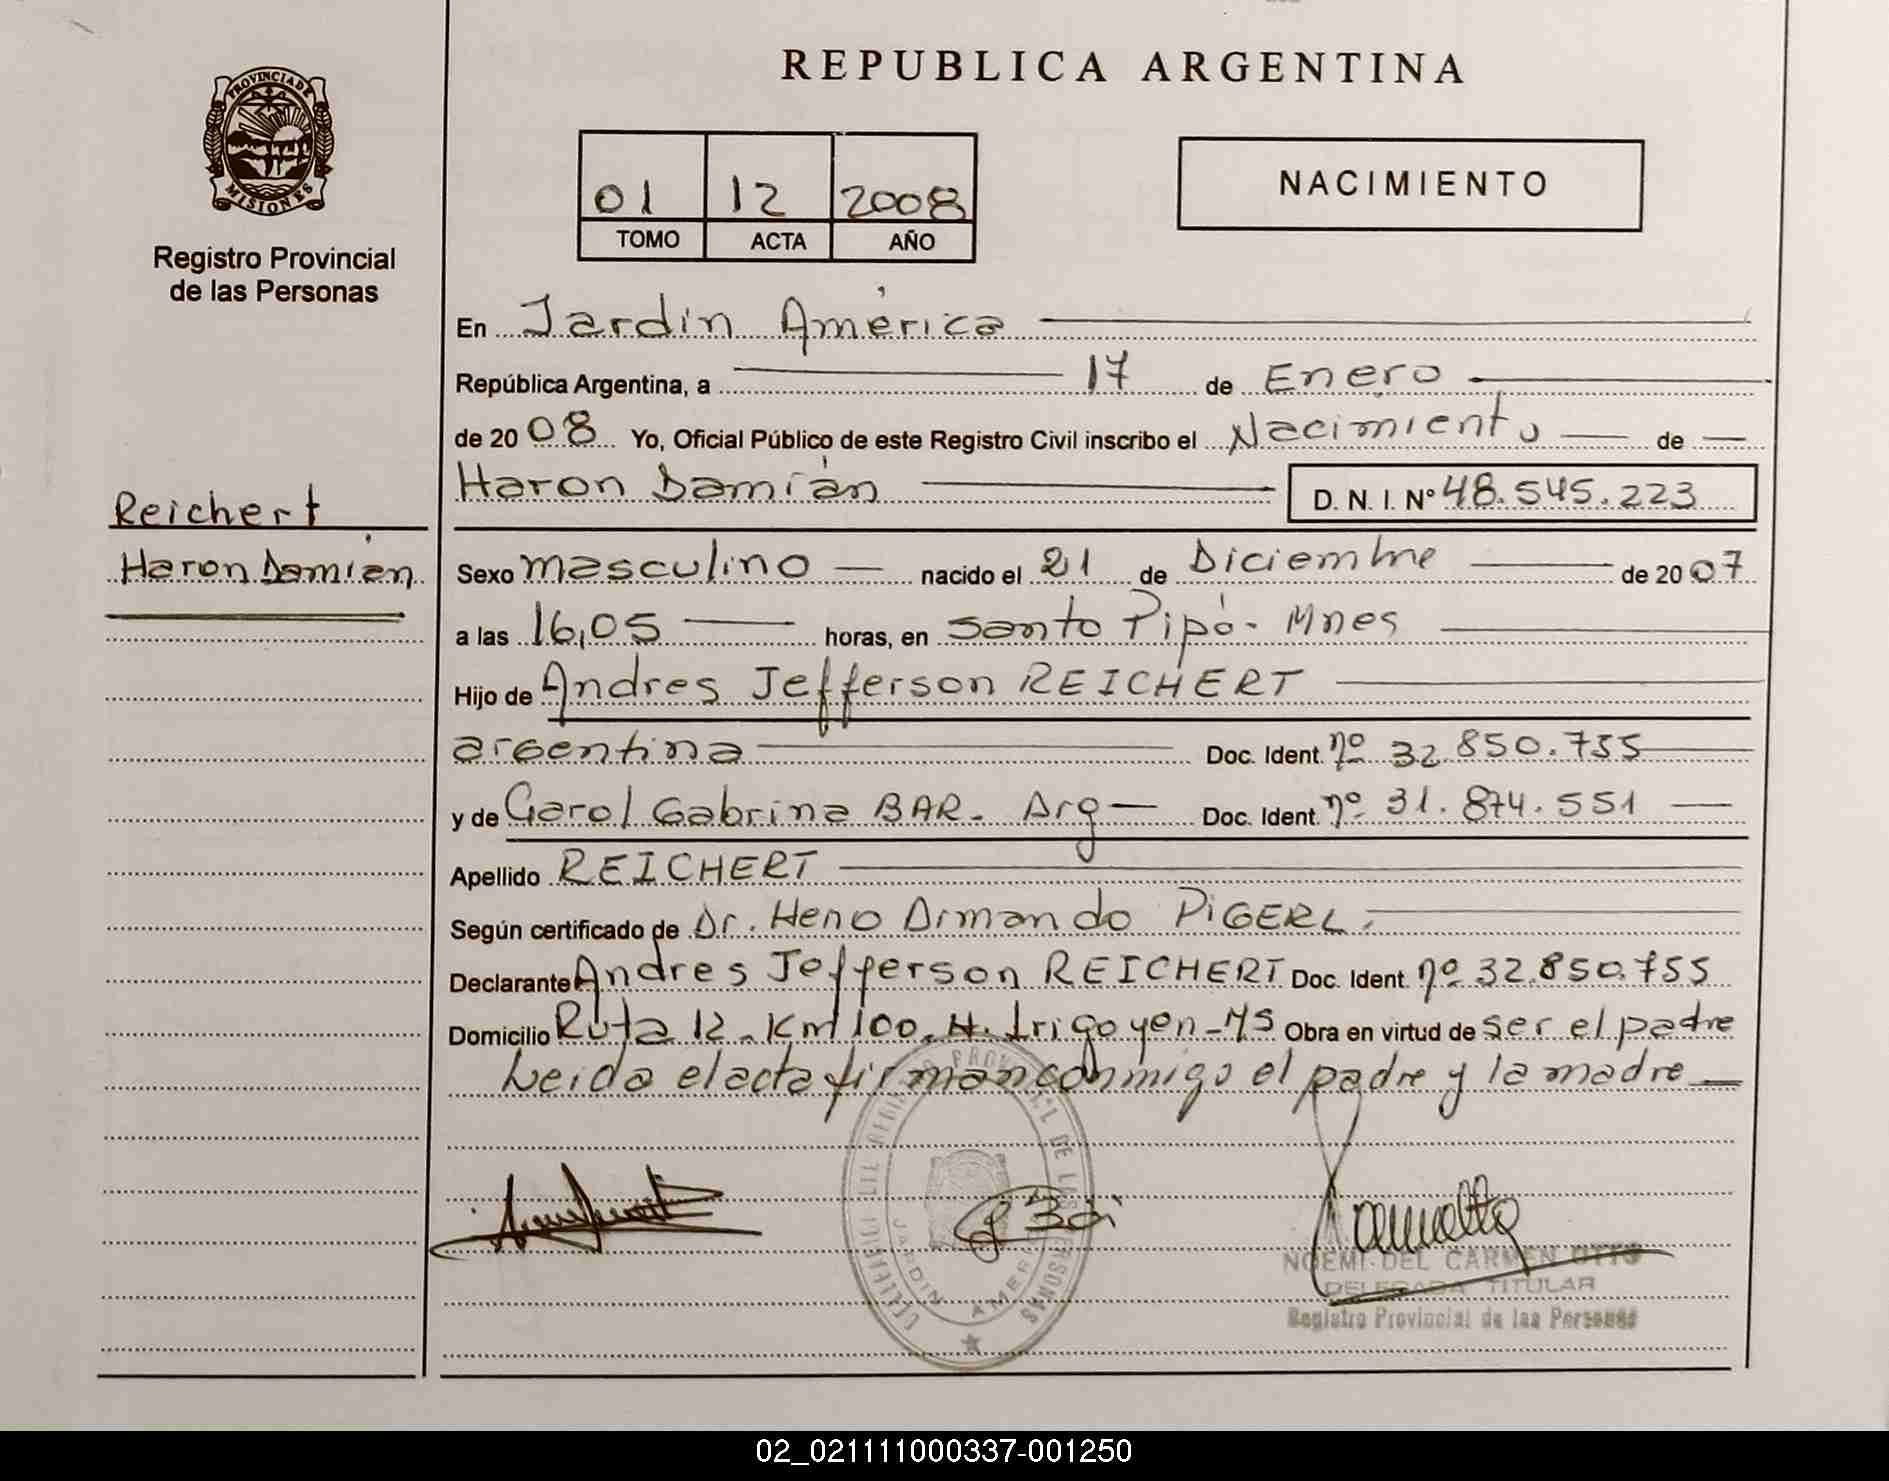 REPUBLICA ARGENTINA
PROVINCIA DE
MISIONES
Registro Provincial
de las Personas
01 12 2008
TOMO ACTA AÑO
NACIMIENTO
En Jardín América
República Argentina, a 17 de Enero
de 2008 Yo, Oficial Público de este Registro Civil inscribo el Nacimiento de
Haron Damián D. N. I. Nº 48.545.223
Reichert
Haron Damián
Sexo masculino nacido el 21 de Diciembre de 2007
a las 16,05 horas, en Santo Pipó - Mnes
Hijo de Andres Jefferson REICHERT
argentina Doc. Ident. nº 32.850.755
y de Carol Gabrina BAR. Arg Doc. Ident. nº 31.874.551
Apellido REICHERT
Según certificado de Dr. Heno Armando PIGERL.
Declarante Andres Jefferson REICHERT Doc. Ident. nº 32.850.755
Domicilio Ruta 12 - Km 100. H. Irigoyen - MS Obra en virtud de ser el padre
Leida el acta firman conmigo el padre y la madre
REGISTRO PROVINCIAL DE LAS PERSONAS
JARDIN AMERICA
NOEMI DEL CARMEN OTTO
DELEGADA TITULAR
Registro Provincial de las Personas
02_021111000337-001250